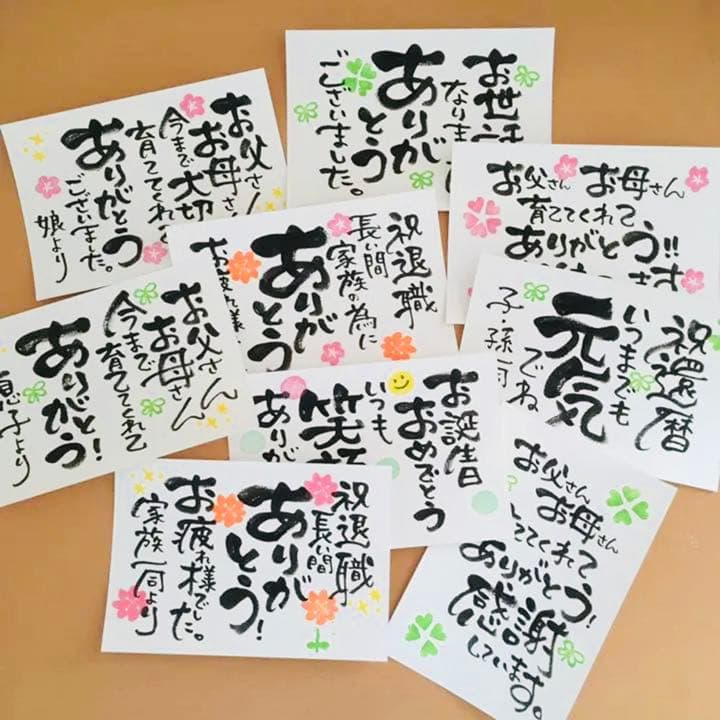 お父さん
お母さん
今まで大切
育ててくれ
ありがとう
ございました。
娘より
お世話
なりま
ありがとう
ございました。
お父さん お母さん
育ててくれて
ありがとう!!
ます
祝退職
長い間
家族の為に
ありがとう
お疲れ様
祝還暦
いつまでも
元気
でね
子・孫一同
お父さん
お母さん
今まで
育ててくれて
ありがとう!
息子より
お誕生日
おめでとう
いつも
笑
ありが
祝退職
長い間
ありがとう!
お疲れ様でした。
家族一同より
お父さん
お母さん
ててくれて
ありがとう!
感謝
しています。